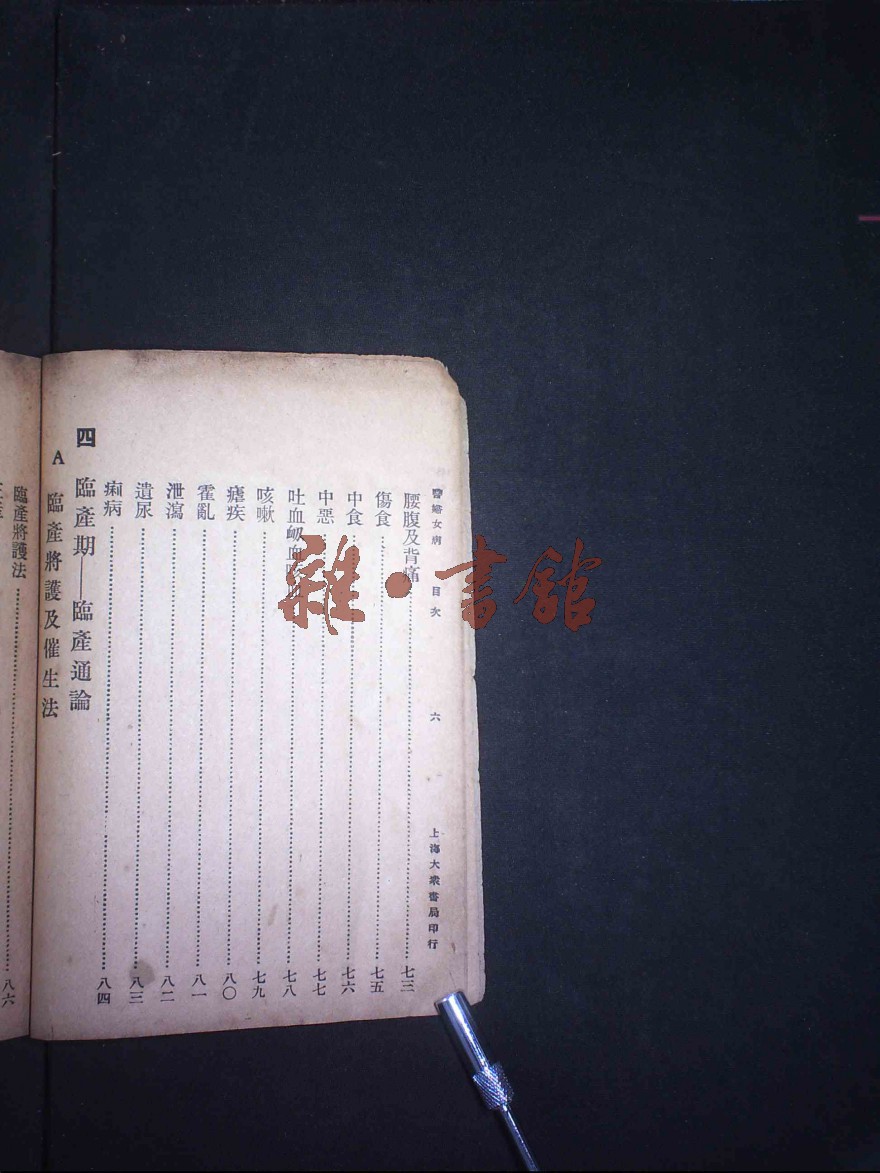 婦女病 目次 六 上海大衆書局印行
腰腹及背痛 七三
傷食 七五
中食 七六
中惡 七七
吐血衂血 七八
咳嗽 七九
瘧疾 八〇
霍亂 八一
泄瀉 八二
遺尿 八三
痢病 八四
四 臨產期——臨產通論
A 臨產將護及催生法
臨產將護法 八六
雜·書館